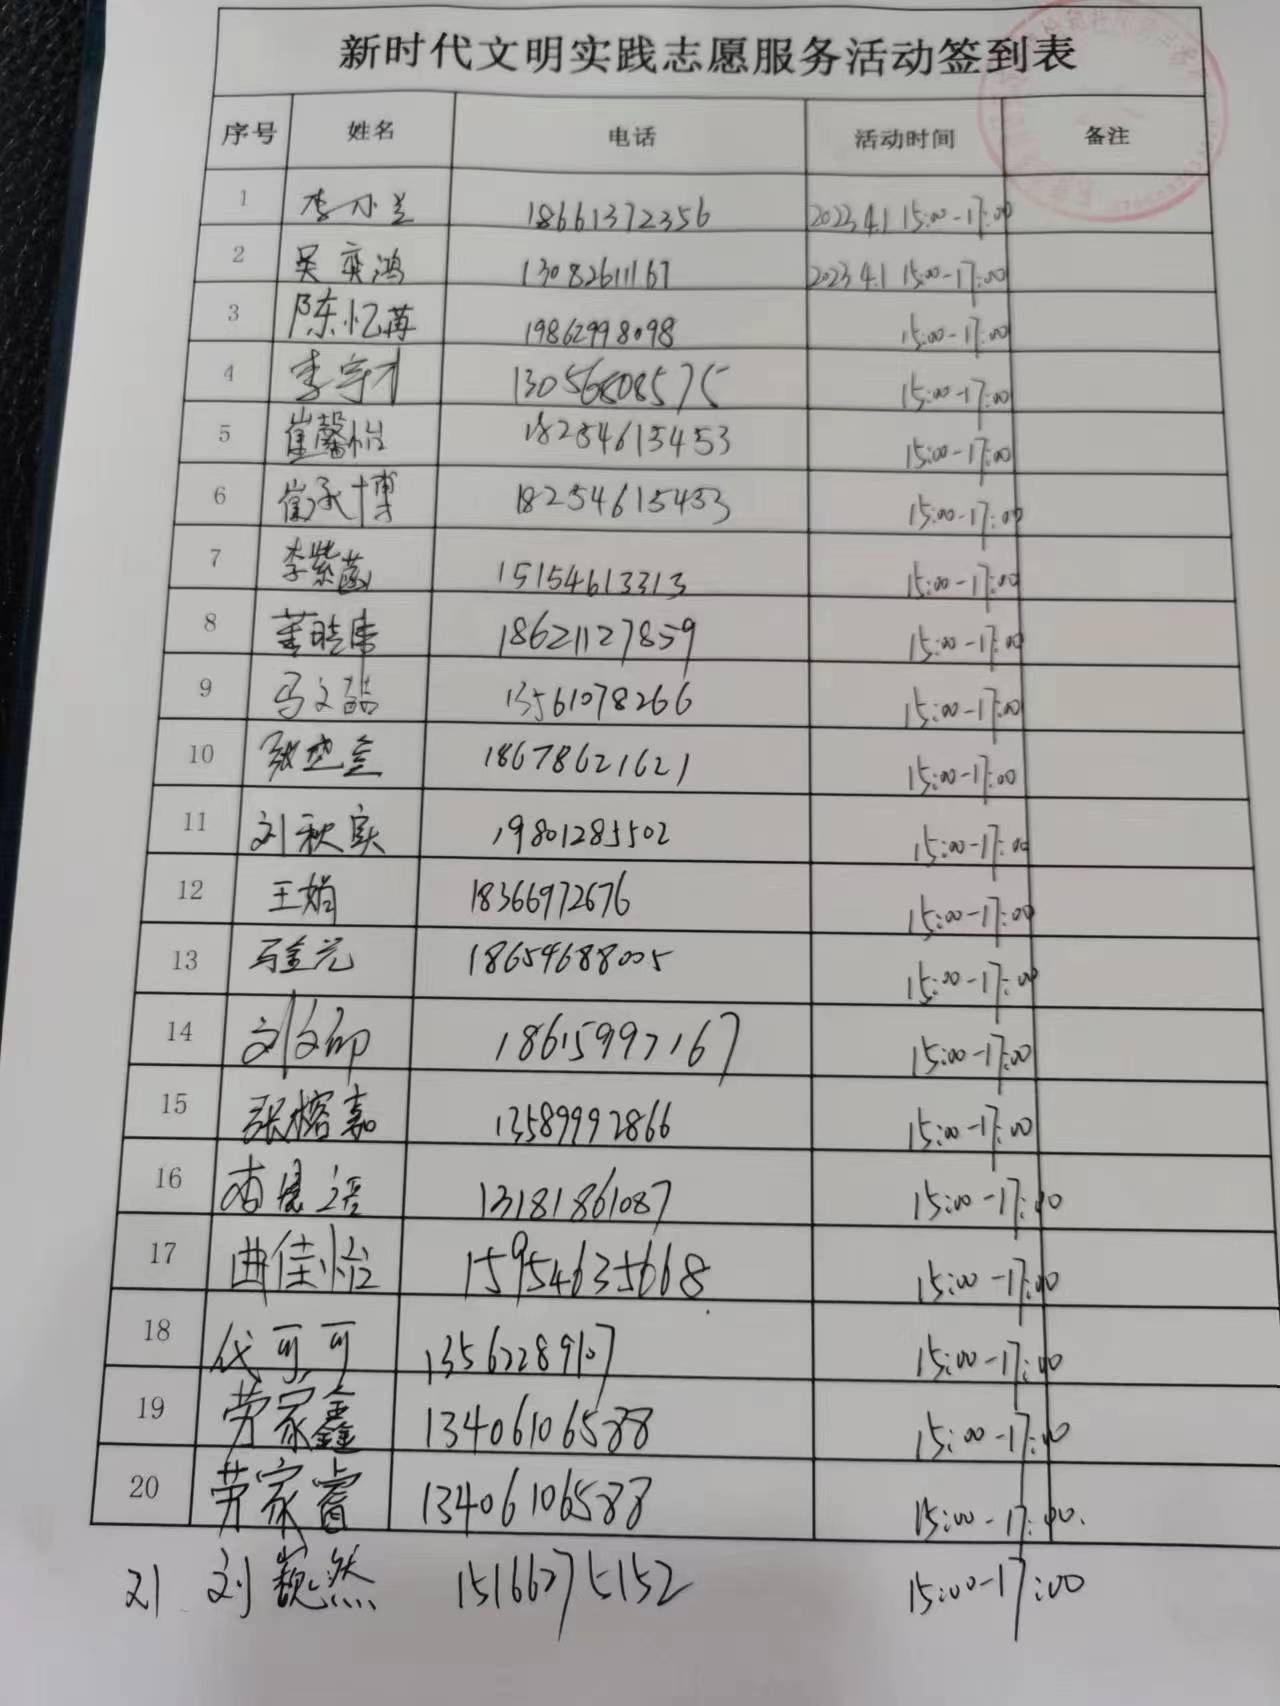 新时代文明实践志愿服务活动签到表
序号 姓名 电话 活动时间 备注
1 李小兰 18661372356 2023.4.1 15:00-17:00
2 吴奕鸿 13082611167 2023.4.1 15:00-17:00
3 陈忆苒 19862998098 15:00-17:00
4 李宇才 13056808575 15:00-17:00
5 崔馨怡 18254615453 15:00-17:00
6 崔承博 18254615453 15:00-17:00
7 李紫菡 15154613313 15:00-17:00
8 董皓康 18621127859 15:00-17:00
9 马文喆 13561078266 15:00-17:00
10 张楚金 18678621621 15:00-17:00
11 刘秋实 19801285502 15:00-17:00
12 王娟 18366972676 15:00-17:00
13 马金元 18654688005 15:00-17:00
14 刘文 18615997167 15:00-17:00
15 张榕嘉 13589992866 15:00-17:00
16 13181861087 15:00-17:00
17 曲佳怡 15954635668 15:00-17:00
18 代可可 13562289107 15:00-17:00
19 劳家鑫 13406106588 15:00-17:00
20 劳家睿 13406106588 15:00-17:00.
21 刘巍然 15166275152 15:00-17:00